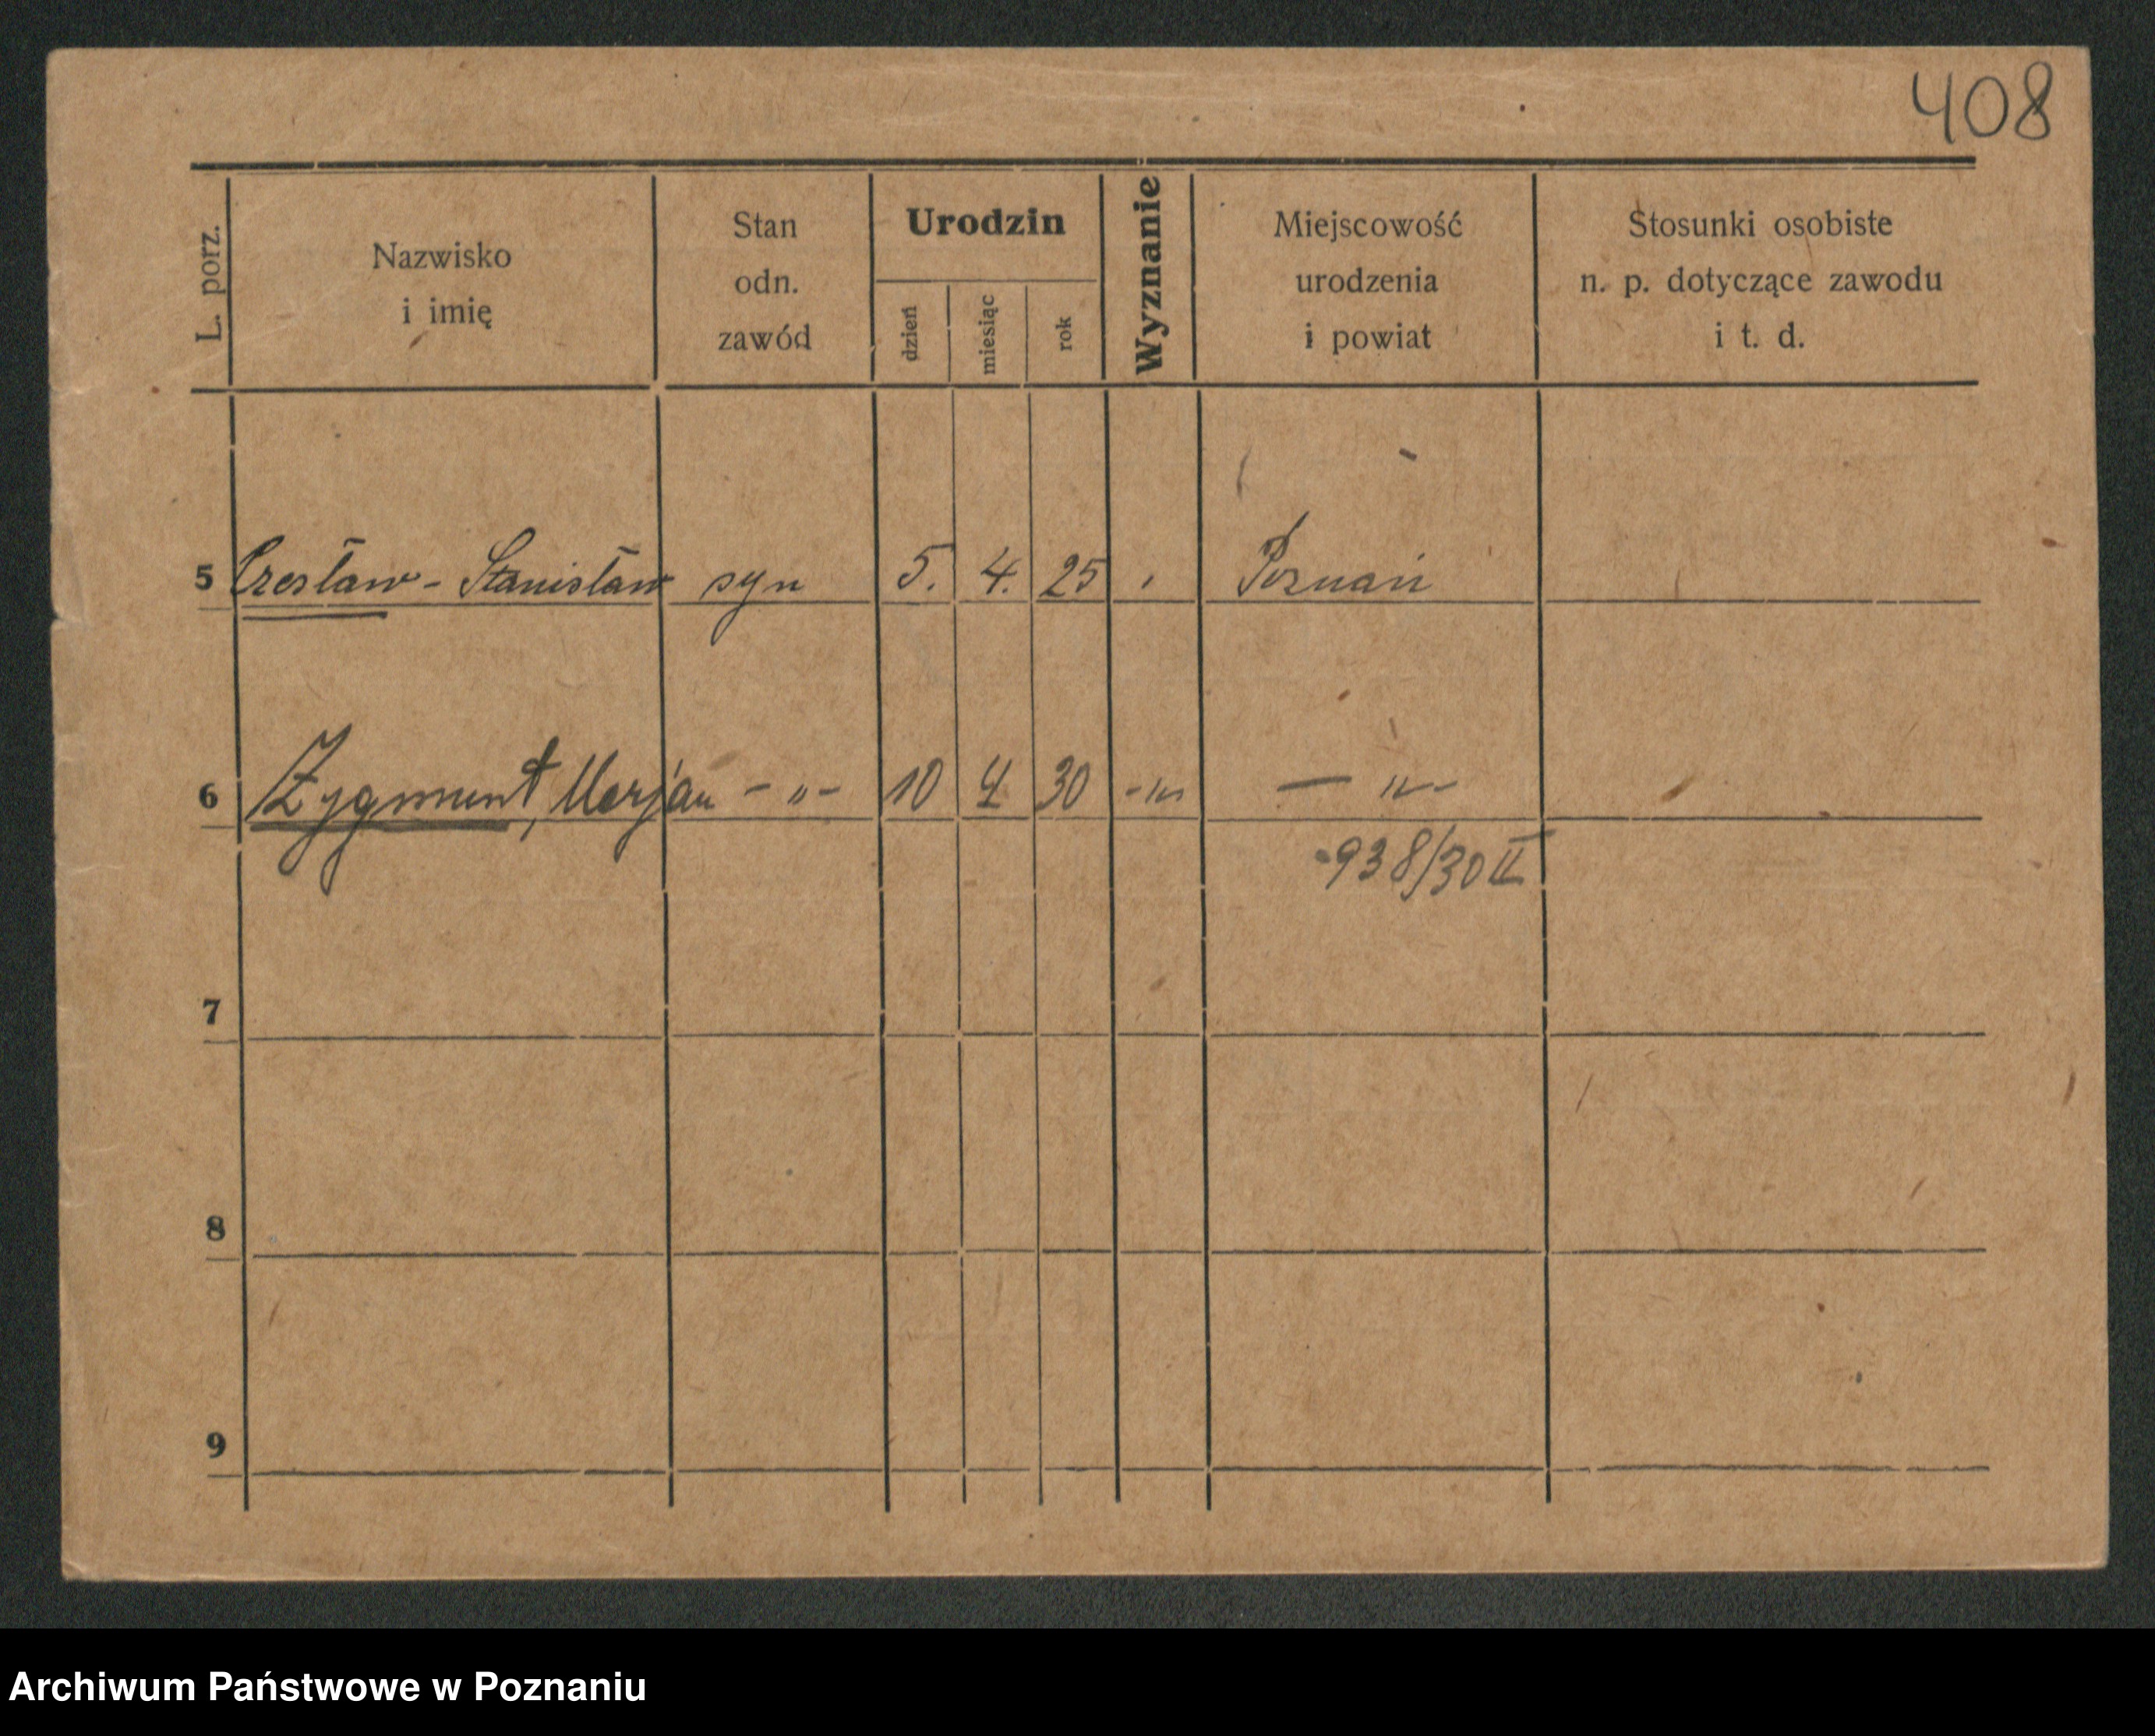 408
L. porz.
Nazwisko
i imię
Stan
odn.
zawód
Urodzin
dzień
miesiąc
rok
Wyznanie
Miejscowość
urodzenia
i powiat
Stosunki osobiste
n. p. dotyczące zawodu
i t. d.
5 Czesław - Stanisław syn 5. 4. 25 Poznań
6 Zygmunt, Marjan - „ - 10 4 30 - „ - — „ -
938/30 II
7
8
9
Archiwum Państwowe w Poznaniu